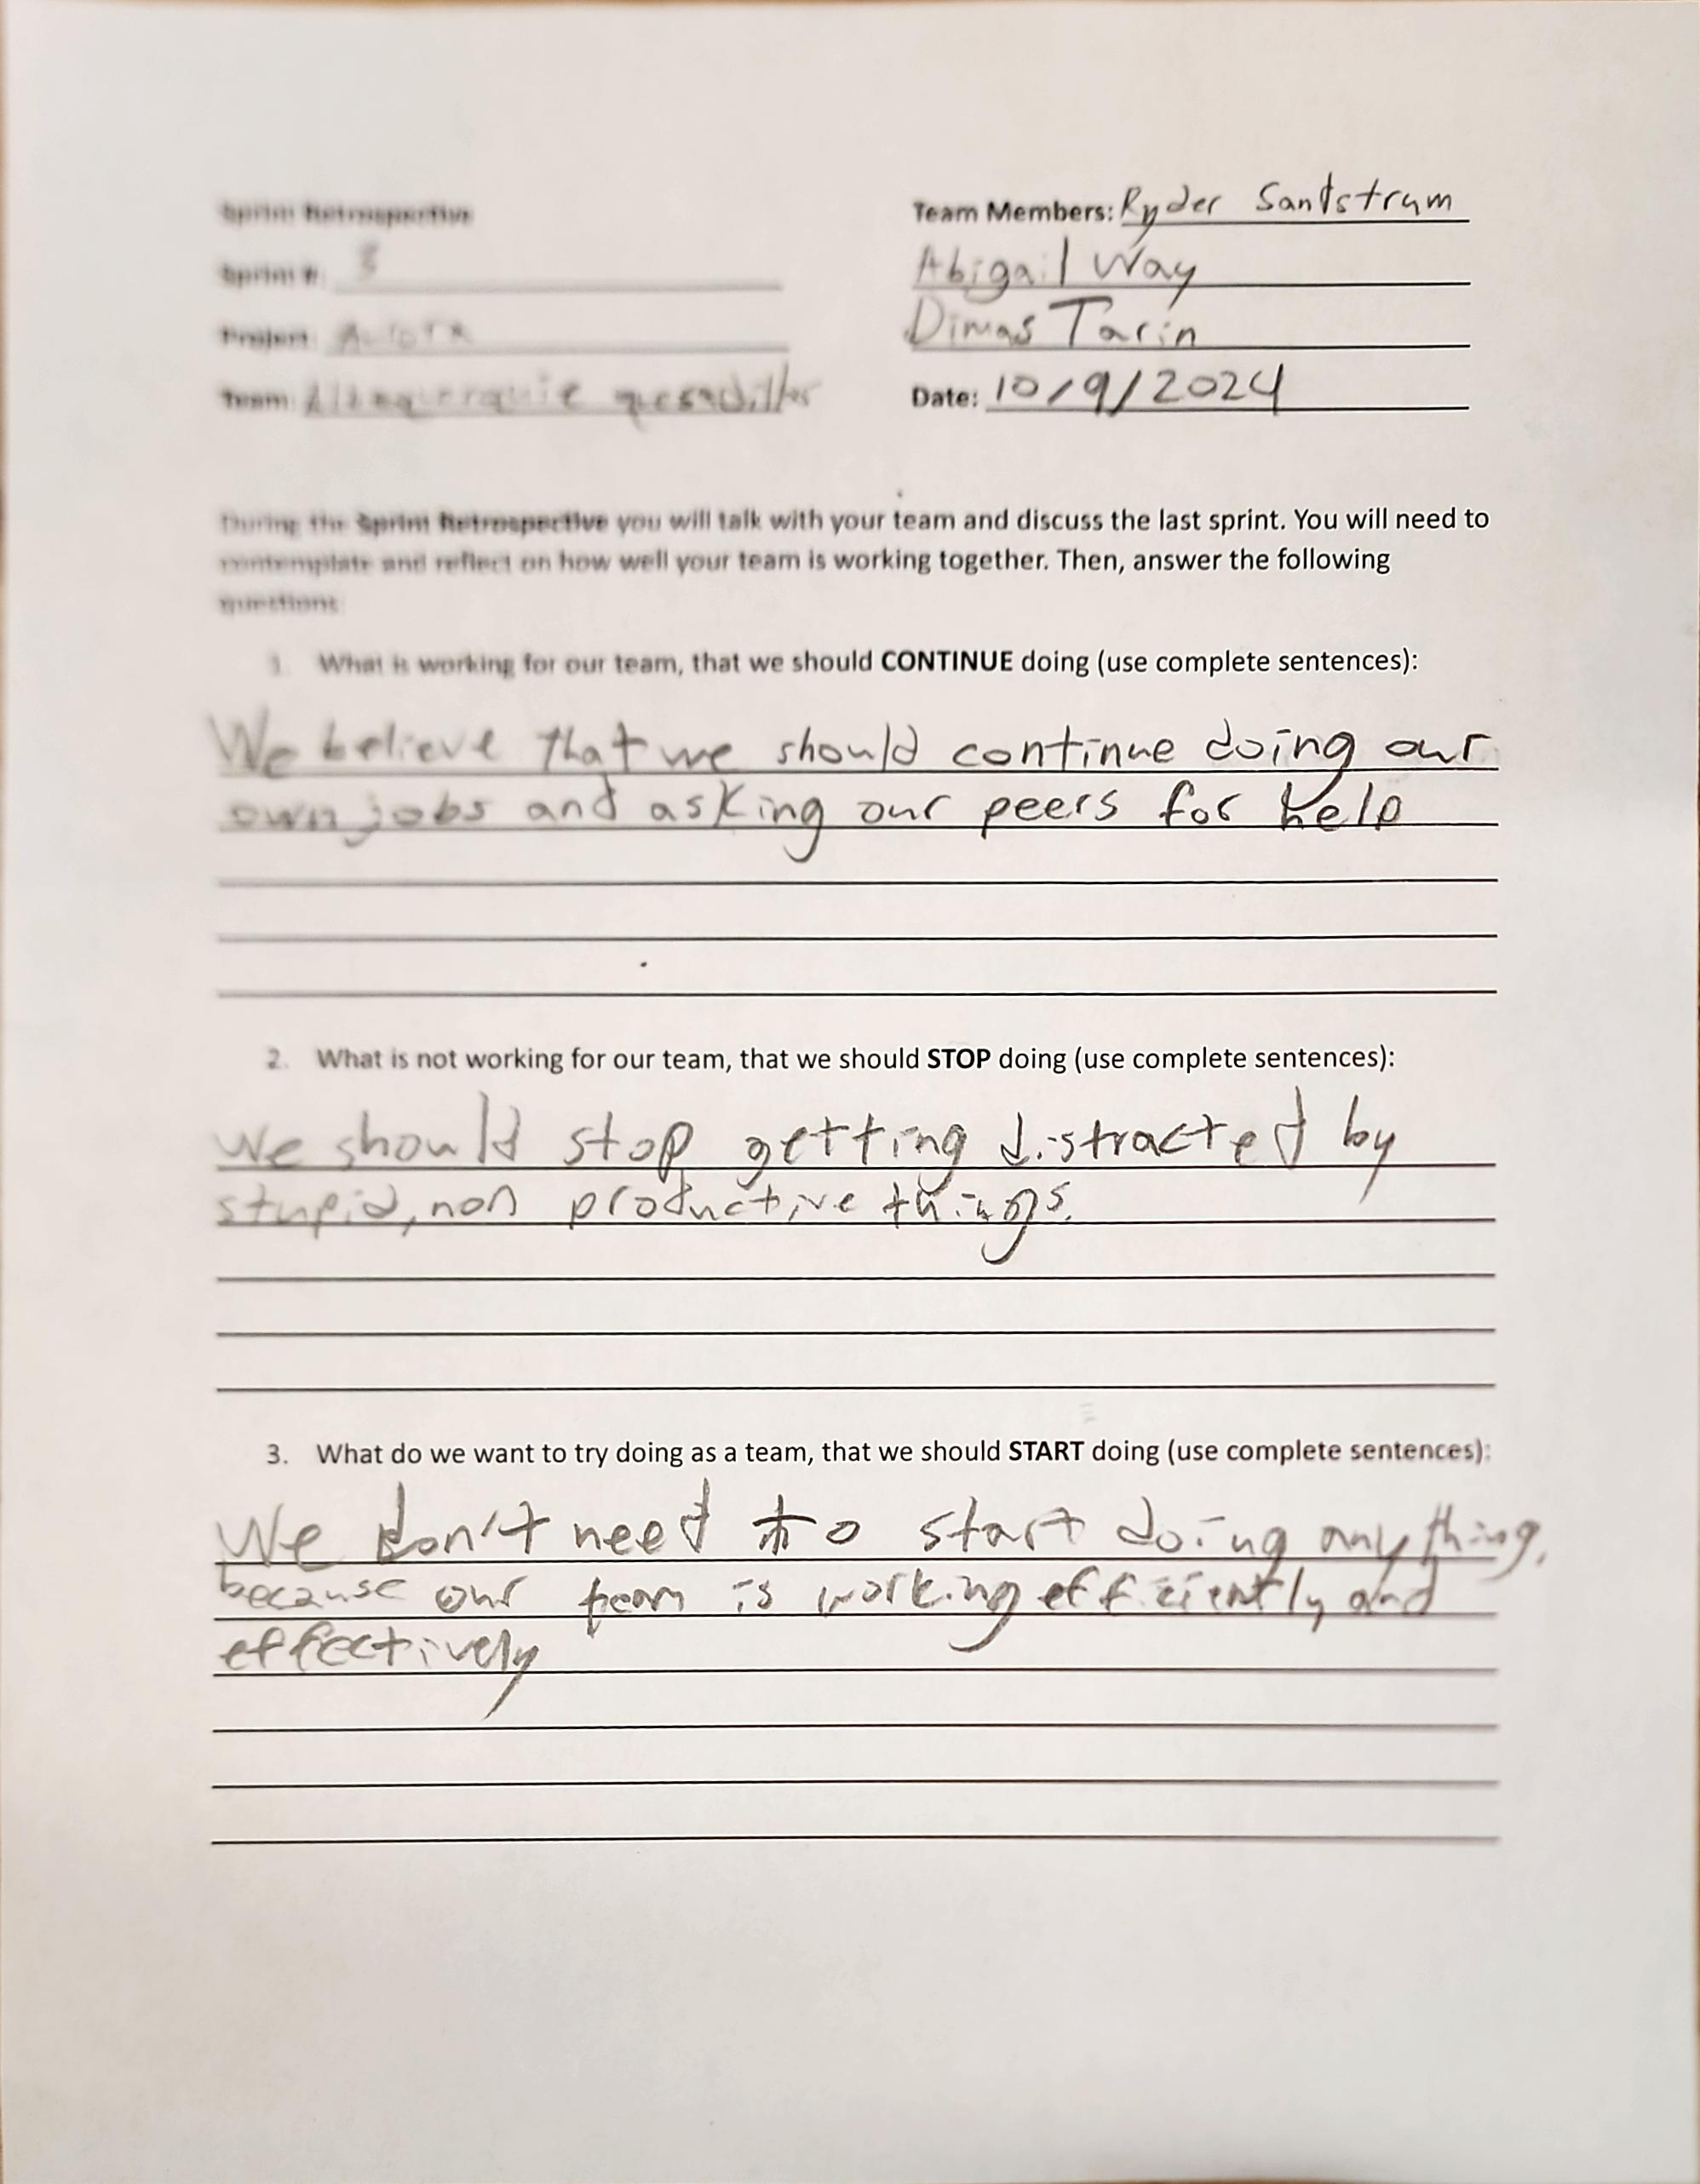 Sprint Retrospective
Sprint #: 3
Project:
Team: Albaquerquie quesadillas
Team Members: Ryder Sandstrum
Abigail Way
Dimas Tarin
Date: 10/9/2024
During the Sprint Retrospective you will talk with your team and discuss the last sprint. You will need to
contemplate and reflect on how well your team is working together. Then, answer the following
questions:
1. What is working for our team, that we should CONTINUE doing (use complete sentences):
We believe that we should continue doing our
own jobs and asking our peers for help
2. What is not working for our team, that we should STOP doing (use complete sentences):
We should stop getting distracted by
stupid, non productive things.
3. What do we want to try doing as a team, that we should START doing (use complete sentences):
We don't need to start doing anything,
because our team is working efficiently and
effectively